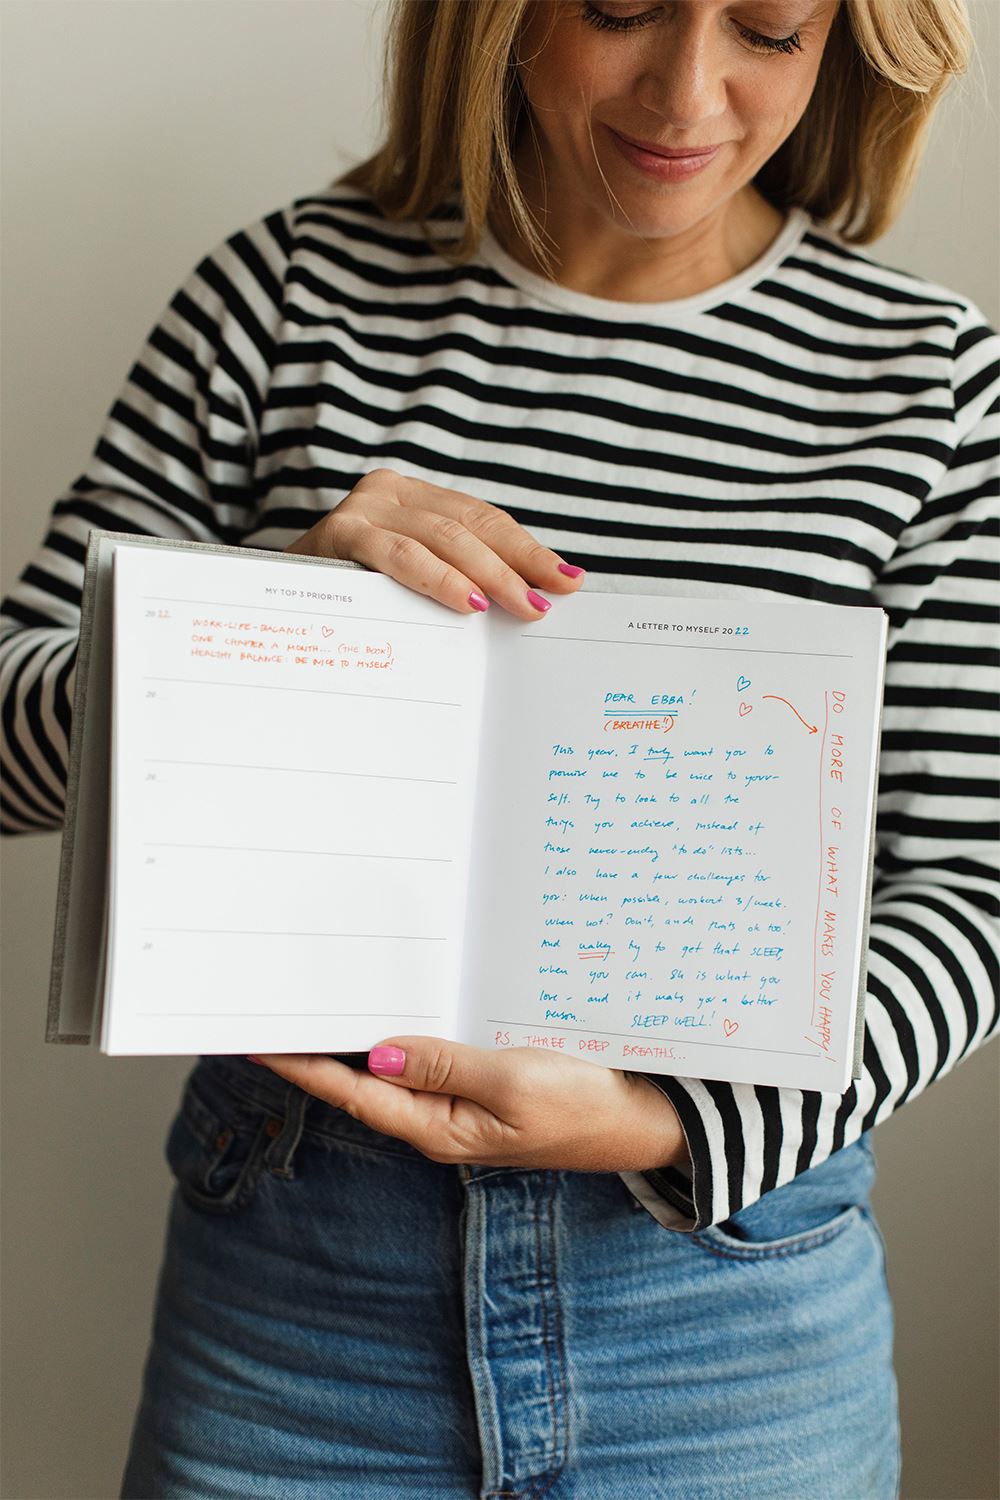 MY TOP 3 PRIORITIES
20 22
WORK-LIFE-BALANCE! ♡
ONE CHAPTER A MONTH... (THE BOOK!)
HEALTHY BALANCE: BE NICE TO MYSELF!
20
20
20
20
A LETTER TO MYSELF 20 22
DEAR EBBA!
(BREATHE!!)
This year, I truly want you to
promise me to be nice to your-
self. Try to look to all the
things you achieve, instead of
those never-ending "to do" lists...
I also have a few challenges for
you: when possible, workout 3/week.
When not? Don't, and thats ok too!
And try to get that SLEEP,
when you can. is what you
love - and it makes you a better
person... SLEEP WELL! ♡
P.S. THREE DEEP BREATHS...
DO MORE OF WHAT MAKES YOU HAPPY!